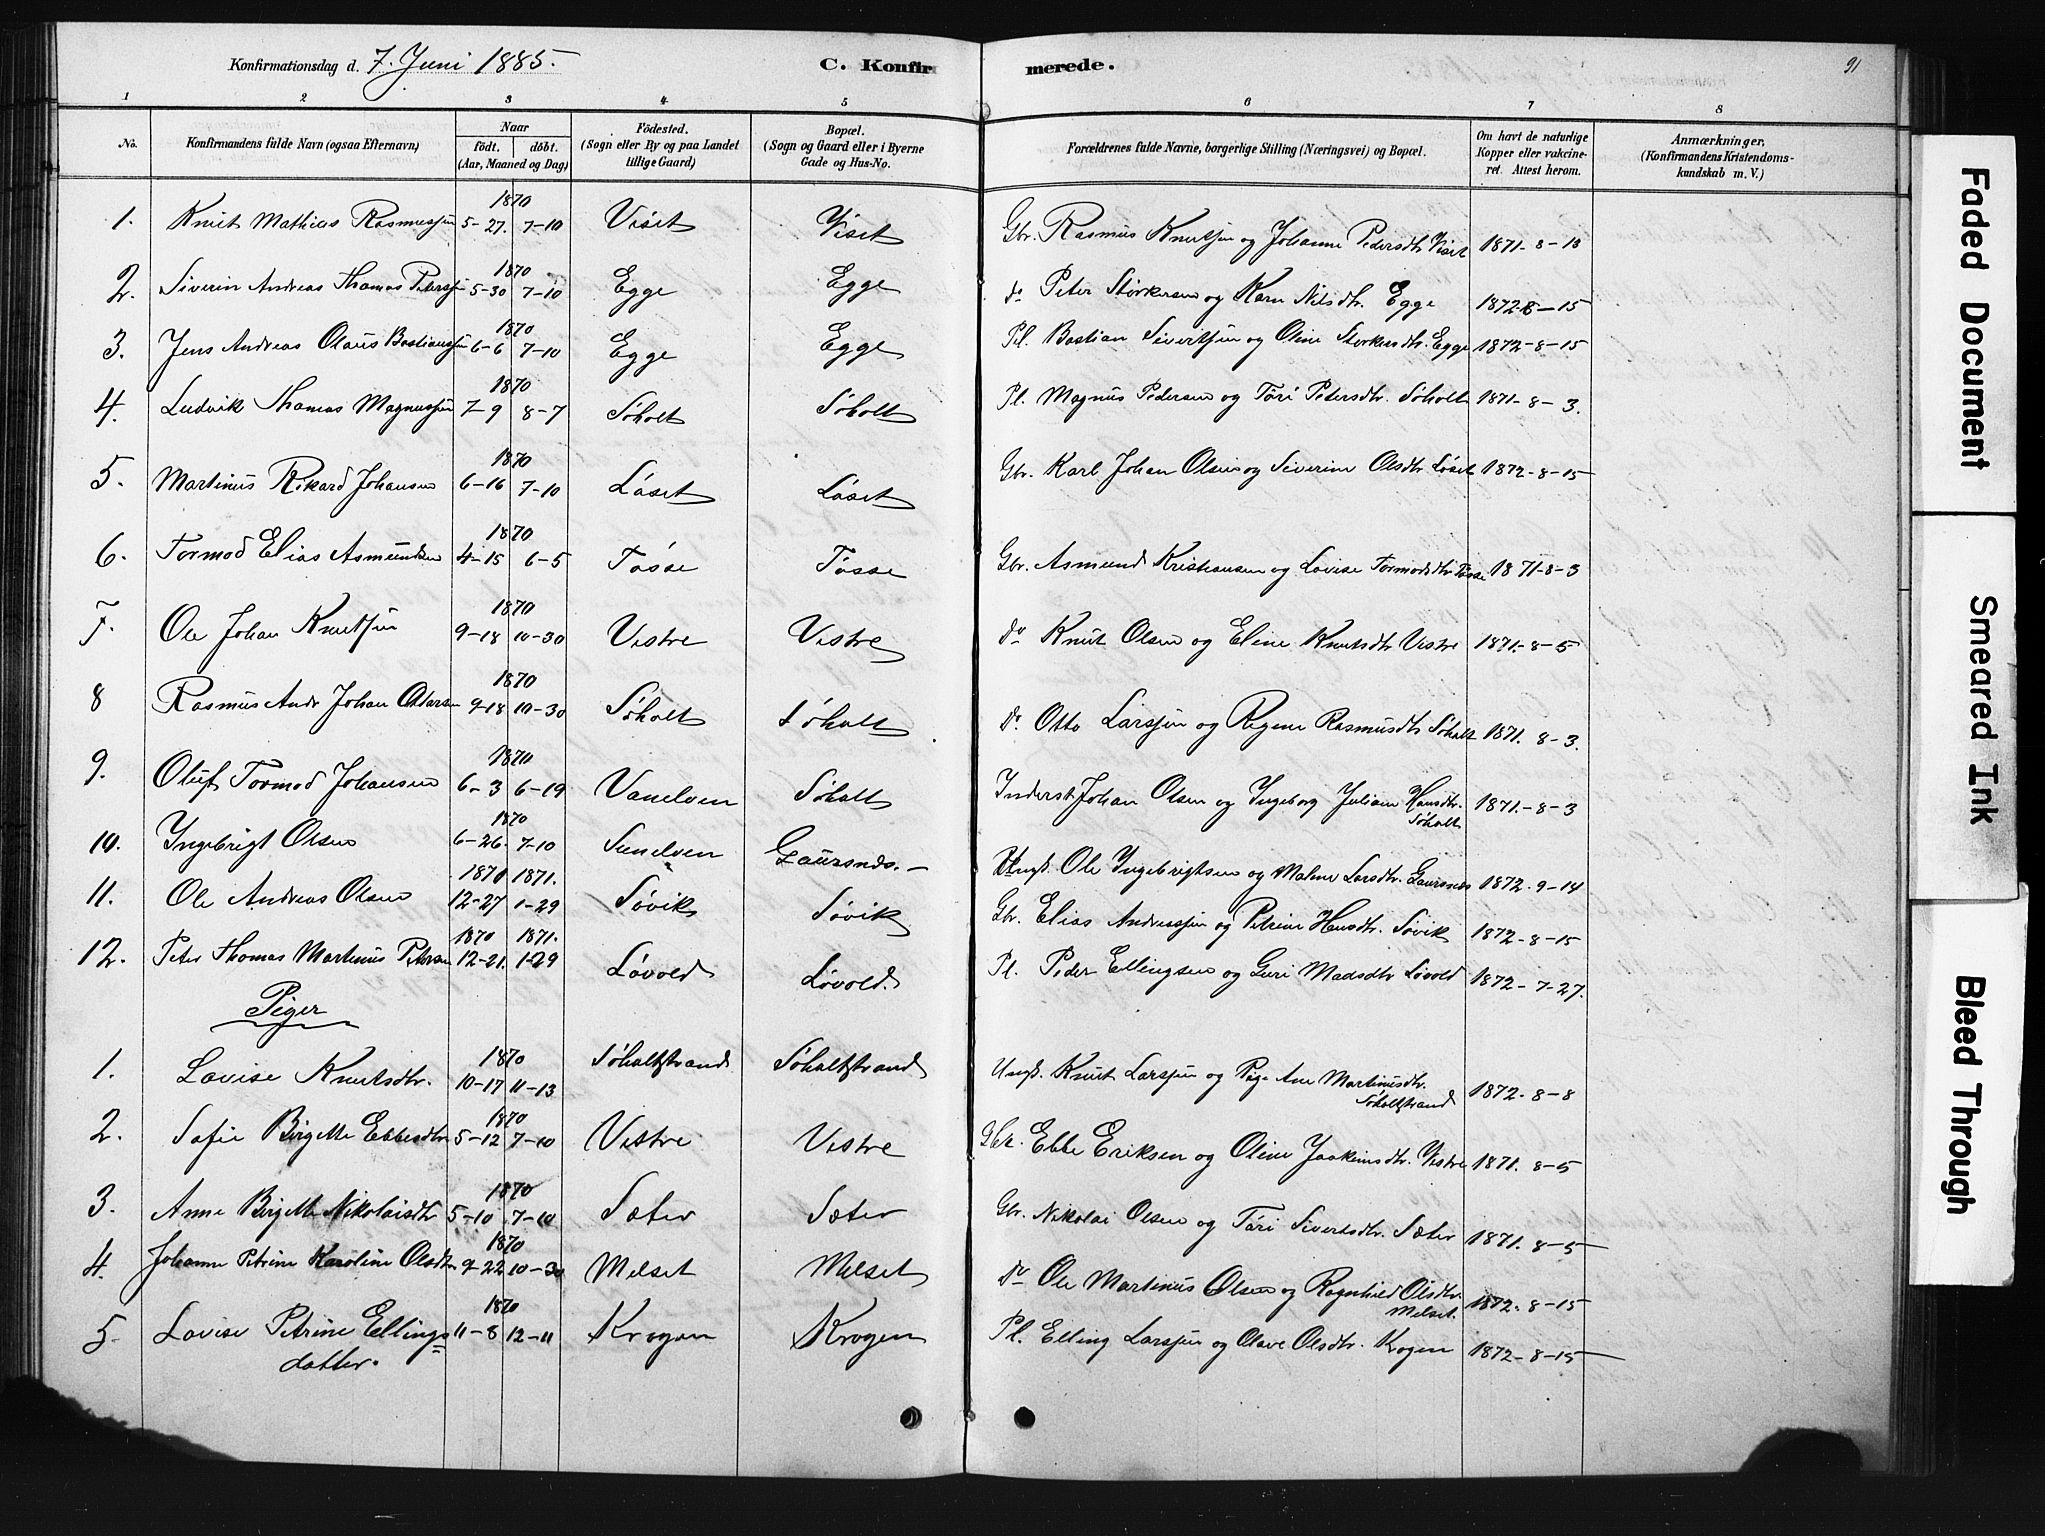 Konfirmationsdag d. 7. Juni 1885.
C. Konfirmerede.
91
1 2 3 4 5 6 7 8
No.
Konfirmandens fulde Navn (ogsaa Efternavn)
Naar
födt. döbt.
(Aar, Maaned og Dag)
Födested.
(Sogn eller By og paa Landet
tillige Gaard)
Bopæl.
(Sogn og Gaard eller i Byerne
Gade og Hus-No.
Forældrenes fulde Navne, borgerlige Stilling (Næringsvei) og Bopæl.
Om havt de naturlige
Kopper eller vakcine-
ret. Attest herom.
Anmærkninger,
(Konfirmandens Kristendoms-
kundskab m. V.)
1. Knut Mathias Rasmussen 1870 5-27. 7-10 Viset Viset Gbr. Rasmus Knutsen og Johanne Pedersdtr. Viset 1871-8-18
2. Siverin Andreas Thomas Petersen 1870 5-30 7-10 Egge Egge do Peter Størkersen og Karn Nilsdtr. Egge 1872-8-15
3. Jens Andreas Olaus Bastiansen 1870 6-6 7-10 Egge Egge Pl. Bastian Sivertsen og Oline Størkersdtr. Egge 1872-8-15
4. Ludvik Thomas Magnussen 1870 7-9 8-7 Søholt Søholt Pl. Magnus Pedersen og Töri Petersdtr. Søholt 1871-8-3.
5. Martinus Rikard Johansen 1870 6-16 7-10 Løset Løset Gbr. Karl Johan Olsen og Siverine Olsdtr. Løset 1872-8-15
6. Tormod Elias Asmundsen 1870 4-15 6-5 Tøsse Tøsse Gbr. Asmund Kristiansen og Lovise Tormodsdtr. Tøsse 1871-8-3
7. Ole Johan Knutsen 1870 9-18 10-30 Vestre Vestre do Knut Olsen og Eline Knutsdtr Vestre 1871.-8-5
8 Rasmus Andr. Johan Ottarsen 1870 9-18 10-30 Søholt Søholt do Otto Larssen og Regine Rasmusdtr. Søholt 1871. 8-3.
9. Oluf Tormod Johansen 1870 6-3 6-19 Vanelven Søholt Inderst Johan Olsen og Ingeborg Juliane Hansdtr. Søholt 1871.-8-3
10. Ingebrigt Olsen 1870 6-26. 7-10 Sunelven Gaursnes. Ungk. Ole Ingebrigtsen og Malene Larsdtr. Gaursnes 1872.-9-14
11. Ole Andreas Olsen 1870 1871. 12-27 1-29 Søvik Søvik Gbr. Elias Andreassen og Petrine Hansdtr. Søvik 1872.-8-15
12. Peter Thomas Martinus Petersen 1870 1871. 12-21. 1-29 Løvold Løvold. Pl. Peder Ellingsen og Guri Madsdtr Løvold 1872-7-27.
Piger
1. Lovise Knutsdtr. 1870 10-17 11-13 Søholtstrand Søholtstrand Ungk. Knut Larssen og Pige Ane Martinusdtr. Søholtstrand 1872.-8-8
2. Sofie Birgitte Ebbesdtr 1870 5-12 7-10 Vestre Vestre Gbr. Ebbe Eriksen og Oline Joakimsdtr. Vestre 1871. 8-5
3. Anne Birgitte Nikolaisdtr 1870 5-10 7-10 Sæter Sæter Gbr. Nikolai Olsen og Töri Sivertsdtr. Sæter 1871. 8-5
4. Johanne Petrine Karoline Olsdtr. 1870 9-22 10-30 Melset Melset do Ole Martinus Olsen og Ragnhild Olsdtr. Melset. 1872.-8-15
5. Lovise Petrine Ellings= 1870 11-8 12-11 Krogen Krogen Pl. Elling Larssen og Olave Olsdtr. Kogen 1872-8-15
datter.
Faded Document
Smeared Ink
Bleed Through